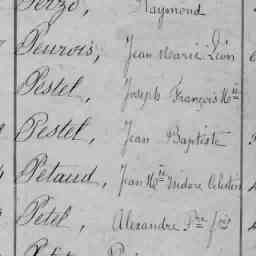 Raymond
Peurois, Jean Marie Léon
Pestel, Joseph François Mie
Pestel, Jean Baptiste
Pétaud, Jean Mie Isidore Célestin
Petel, Alexandre Pre